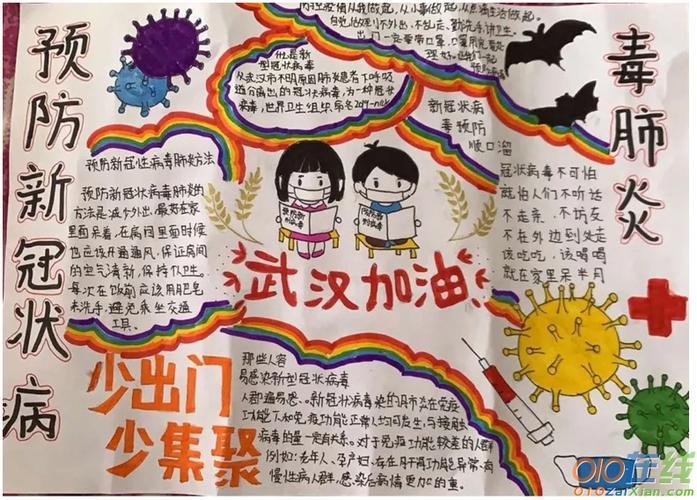 预防新冠状病
毒肺炎
防控疫情从我做起,从小事做起,从点滴生活做起。
自觉做到不外出,不乱走,勤洗手,讲卫生。
出门一定要带口罩,口罩用完要处
理好。让我们一起
什么是新
型冠状病毒
从武汉市不明原因肺炎患者下呼吸
道分离出的冠状病毒,为一种冠状
病毒,世界卫生组织命名2019-nCoV
新冠状病
毒预防
顺口溜
冠状病毒不可怕
就怕人们不听话
不走亲,不访友
不在外边到处走
该吃吃,该喝喝
就在家里呆半月
预防新冠性病毒肺炎方法
预防新冠状病毒肺炎的
方法是减少外出,最好在家
里面呆着,在房间里面时候
也应该开通通风,保证房间
的空气清新,保持个卫生。
每次在饭前应该用肥皂
来洗手,避免乘坐交通
工具。
武汉加油
少出门
少集聚
那些人容
易感染新型冠状病毒
人群普遍易感。新冠状病毒染的肺炎在免疫
功能下和免疫功能正常人均可发生,与接触
病毒的量一定有关系。对于免疫功能较差的人群
例如:老年人、孕产妇、存在肝肾功能异常,有
慢性病人群,感染后病情更加的重。
010在线
010zaixian.com